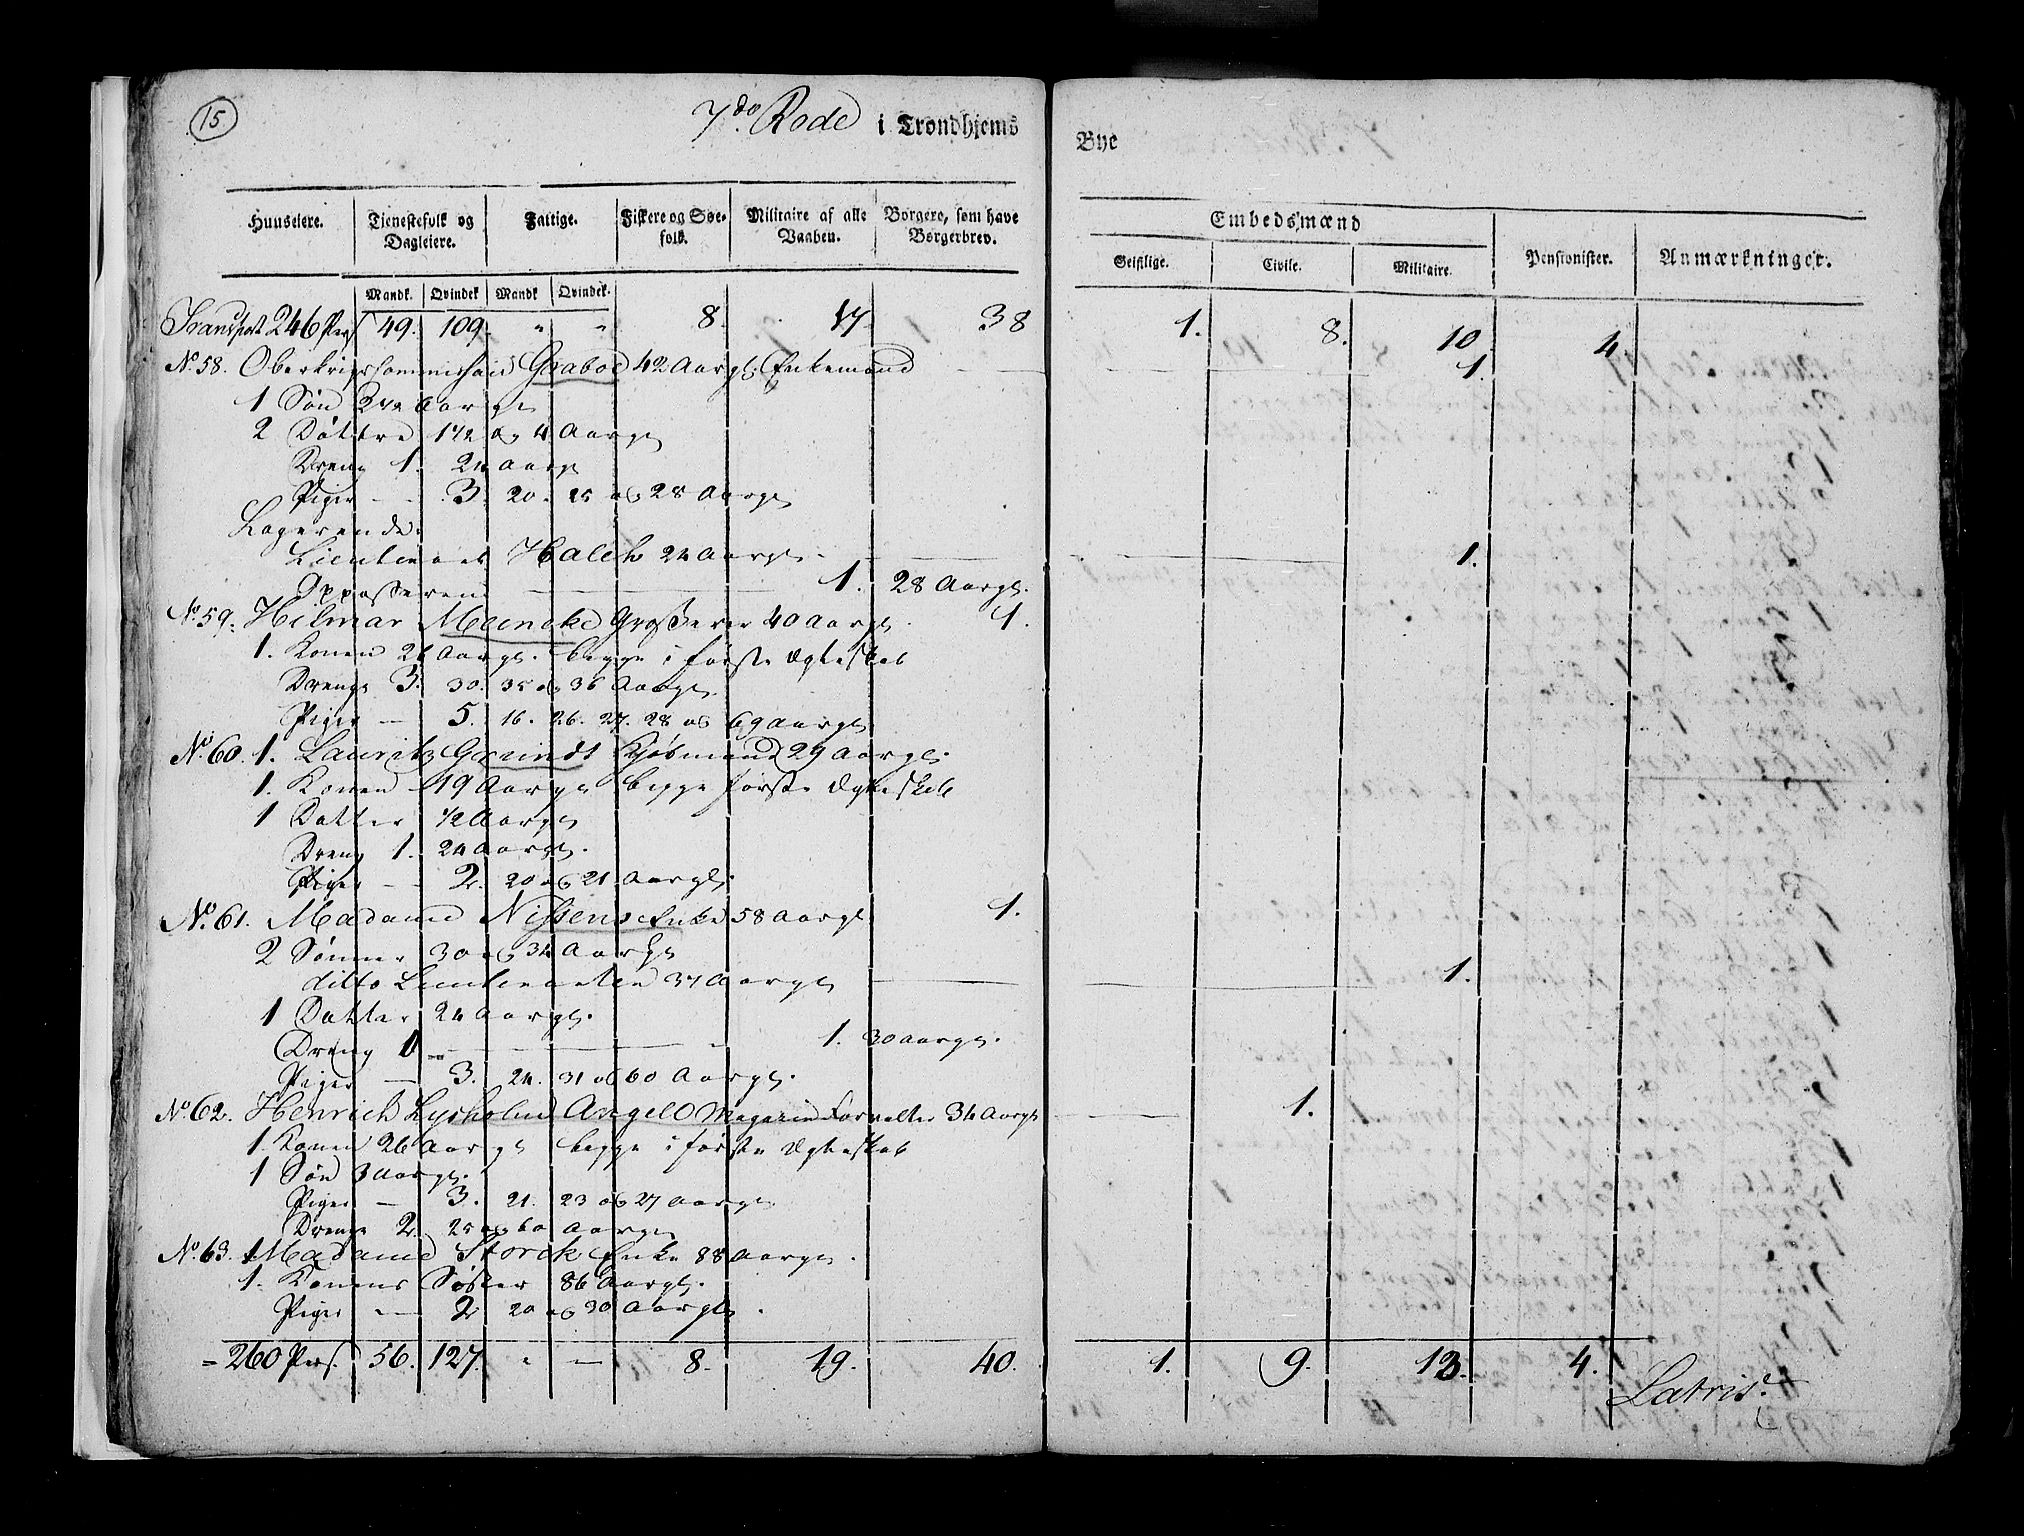 15
7de Rode i Trondhjems Bye
Huuseiere. Tjenestefolk og Dagleiere. Fattige. Fiskere og Søefolk. Militaire af alle Vaaben. Borgere, som have Borgerbrev. Embedsmænd Pensionister. Anmærkninger.
Geistlige. Civile. Militaire.
Mandk. Qvindek Mandk Qvindek.
Transport 246 Pers 49. 109. " " 8. 17. 38 1. 8. 10 4
No. 58. Oberkrigscommissair Graboe 42 Aargl. Enkemand 1.
1 Søn 2 1/2 Aargl
2 Døttre 1 1/2 og 4 Aargl
Dreng 1. 24 Aargl
Piger — 3. 20. 25 og 28 Aargl
Logerende.
Lieutenant Halck 24 Aargl. 1.
Oppasseren 1. 28 Aargl.
No. 59. Hilmar Meincke Grosserer 40 Aargl 1.
1. Konen 26 Aargl. begge i første Ægteskab
Drenge 3. 30. 35 og 36 Aargl
Piger — 5. 16. 26. 27. 28 og 69 Aargl
No. 60. 1. Lauritz Grundt Kjøbmand 29 Aargl.
1. Konen 19 Aargl begge første Ægteskab
1 Datter 1/2 Aargl
Dreng 1. 24 Aargl.
Piger — 2. 20 og 21 Aargl.
No. 61. Madame Nissens Enke 58 Aargl 1.
2 Sønner 30 og 34 Aargl
ditto Lieutenanten 37 Aargl 1.
1 Datter 24 Aargl.
Dreng 1 1. 30 Aargl.
Piger — 3. 24. 31 og 60 Aargl.
No. 62. Henrich Lysholm Angell Magazin Forvalter 34 Aargl 1.
1 Konen 26 Aargl begge i første Ægteskab
1 Søn 3 Aargl.
Piger — 3. 21. 23 og 27 Aargl
Drenge 2. 25 og 60 Aargl
No. 63. 1 Madame Storck Enke 88 Aargl.
1. Konens Søster 86 Aargl.
Piger — 2 20 og 30 Aargl.
= 260 Pers. 56. 127. " — 8. 19. 40. 1. 9. 13. 4.
Latris.